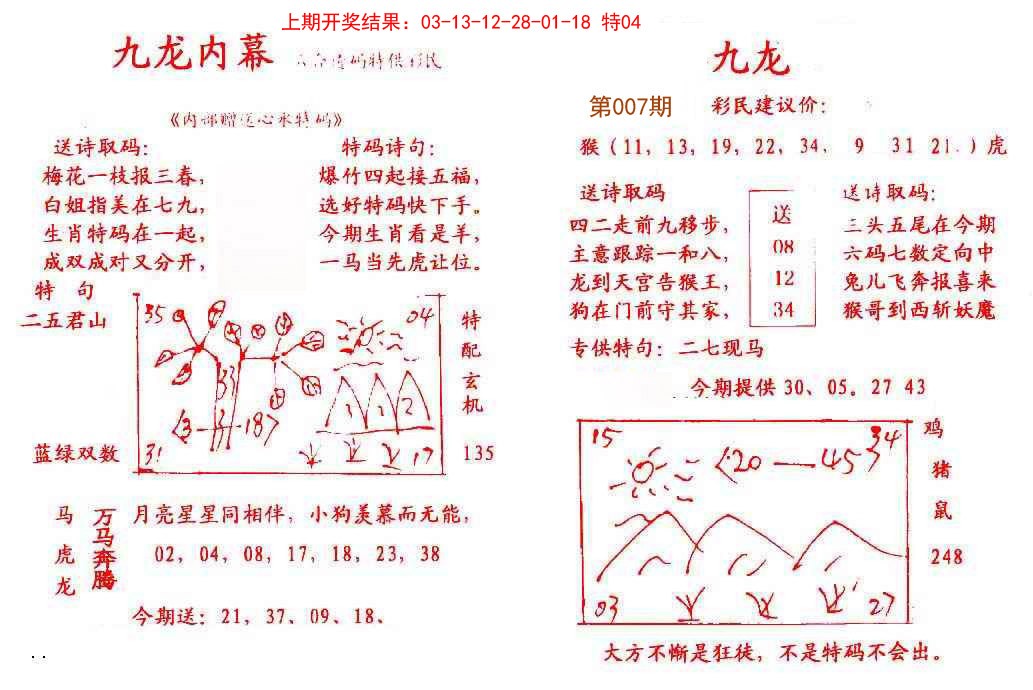 上期开奖结果：03-13-12-28-01-18 特04
九龙内幕
码特供彩民
《内部赠送心水特码》
送诗取码：
梅花一枝报三春，
白姐指美在七九，
生肖特码在一起，
成双成对又分开，
特码诗句：
爆竹四起接五福，
选好特码快下手。
今期生肖看是羊，
一马当先虎让位。
特 句
二五君山
蓝绿双数
35
04
33
<3—3—18>
1 1 2
31
17
特配玄机
135
马虎龙
万马奔腾
月亮星星同相伴，小狗羡慕而无能，
02，04，08，17，18，23，38
今期送：21，37、09、18、
..
九龙
第007期
彩民建议价：
猴（11，13，19，22，34， 9 31 21.）虎
送诗取码
四二走前九移步，
主意跟踪一和八，
龙到天宫告猴王，
狗在门前守其家，
送
08
12
34
送诗取码：
三头五尾在今期
六码七数定向中
兔儿飞奔报喜来
猴哥到西斩妖魔
专供特句：二七现马
今期提供 30、05。27 43
15
34
<20—45>
03
27
鸡
猪
鼠
248
大方不惭是狂徒，不是特码不会出。